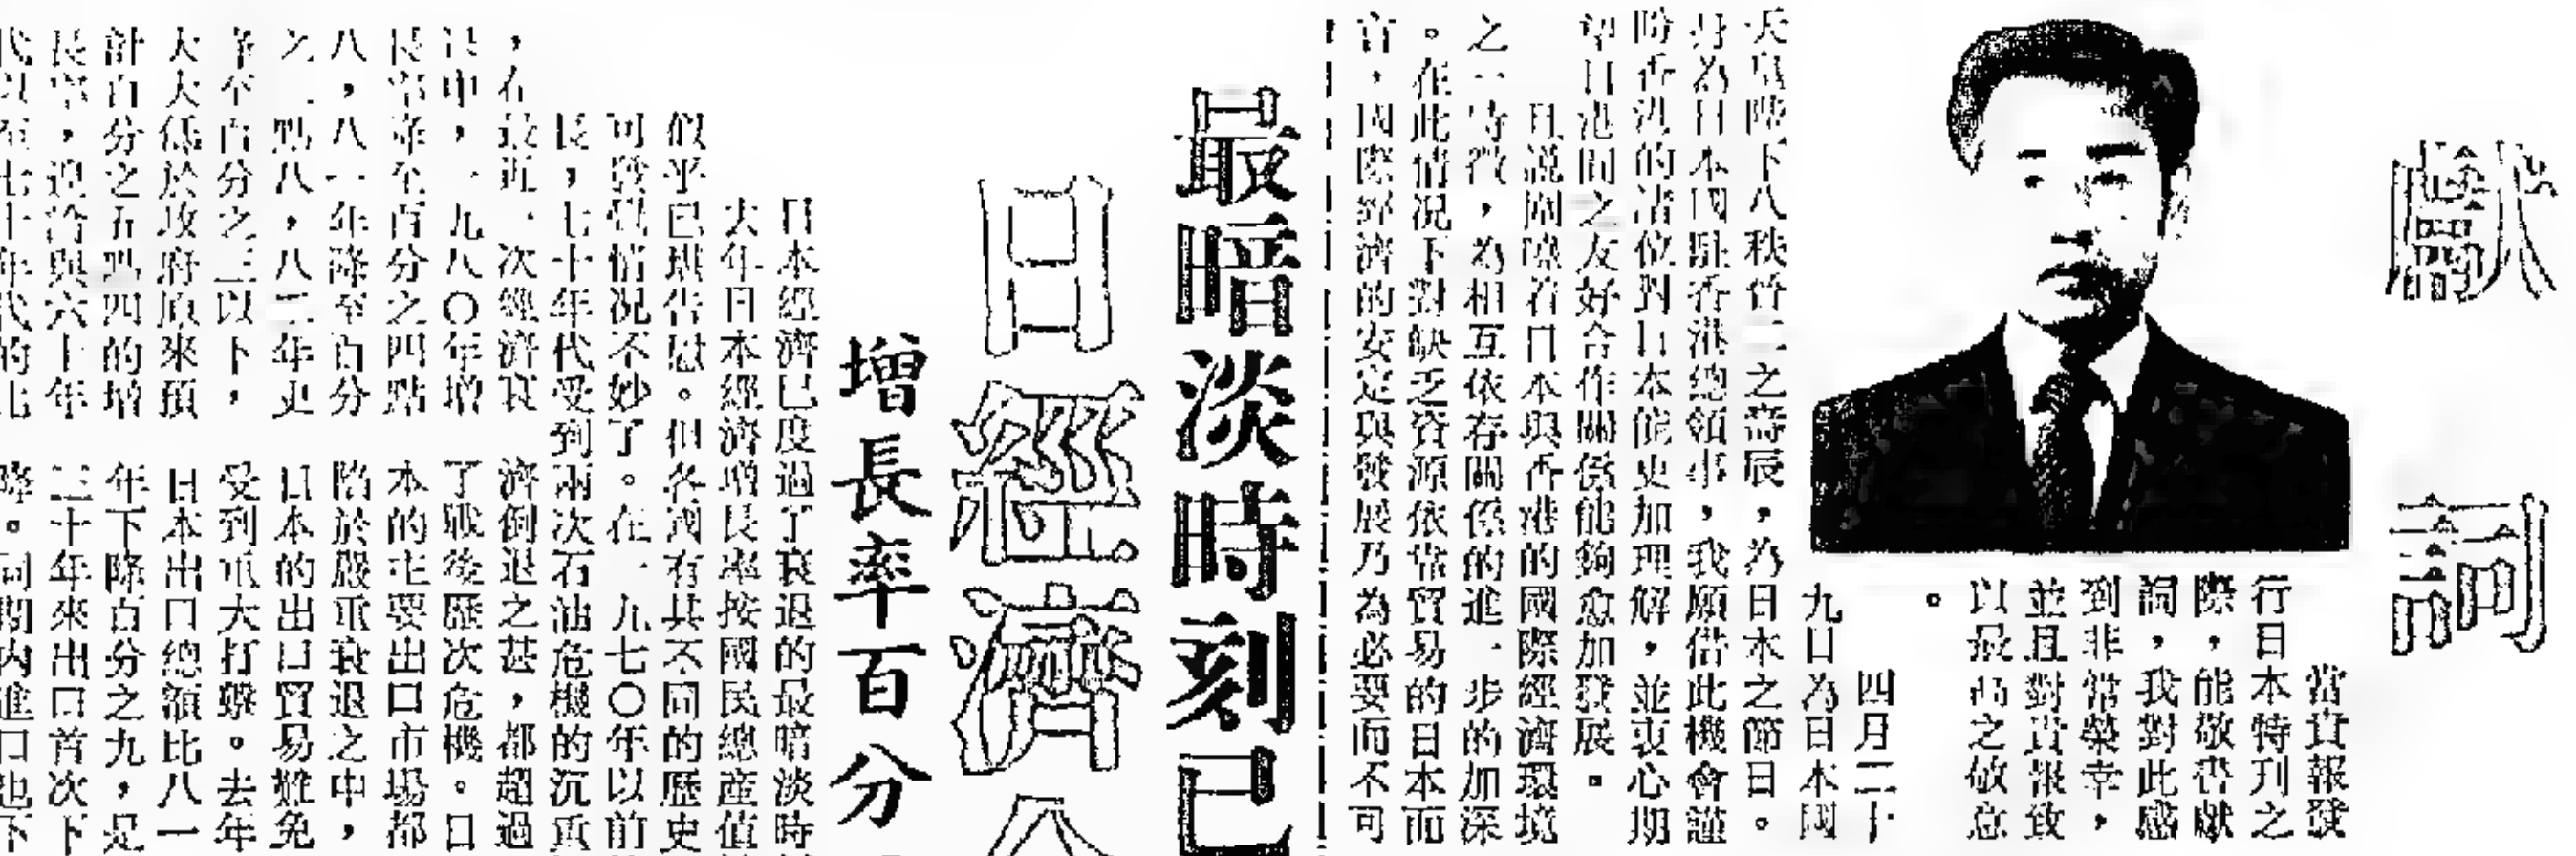 獻詞
當貴報發
行日本特刊之
際，能敬書獻
詞，我對此感
到非常榮幸，
並且對貴報致
以最高之敬意
。
四月二十
九日為日本國
天皇陛下八秩晉二之壽辰，為日本之節日。
身為日本國駐香港總領事，我願借此機會謹
盼香港的諸位對日本能更加理解，並衷心期
望日港間之友好合作關係能夠愈加發展。
且說圍繞着日本與香港的國際經濟環境
之一特徵，為相互依存關係的進一步的加深
。在此情况下對缺乏資源依靠貿易的日本而
言，國際經濟的安定與發展乃為必要而不可
最暗淡時刻已
日經濟
增長率百分
日本經濟已度過了衰退的最暗淡時
去年日本經濟增長率按國民總產值
似乎已堪告慰。但各國有其不同的歷史
可發覺情况不妙了。在一九七〇年以前
長，七十年代受到兩次石油危機的沉重
，在最近一次經濟衰
中，一九八〇年增
長率降至百分之四點
八，八一年降至百分
之二點八，八二年更
降至百分之三以下，
大大低於政府原來預
計百分之五點四的增
長率，適與六十年
代以至七十年代的比
濟倒退之甚，都超過
了戰後歷次危機。日
本的主要出口市場都
陷於嚴重衰退之中，
日本的出口貿易難免
受到重大打擊。去年
日本出口總額比八一
年下降百分之九，是
三十年來出口首次下
降。同期內進口也下